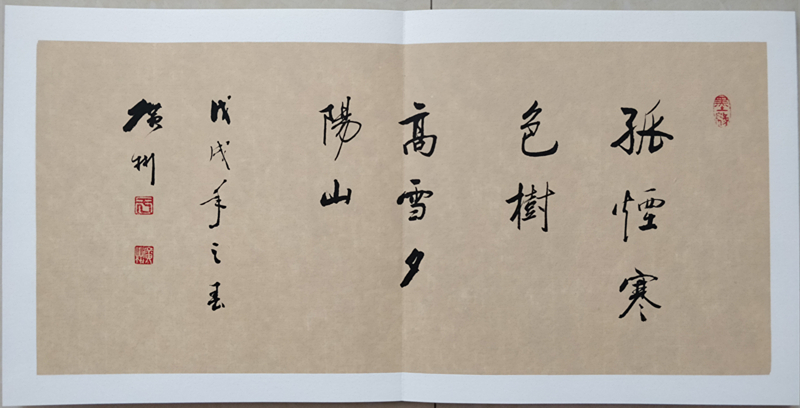 孤煙寒
色樹
高雪夕
陽山
戊戌年之春